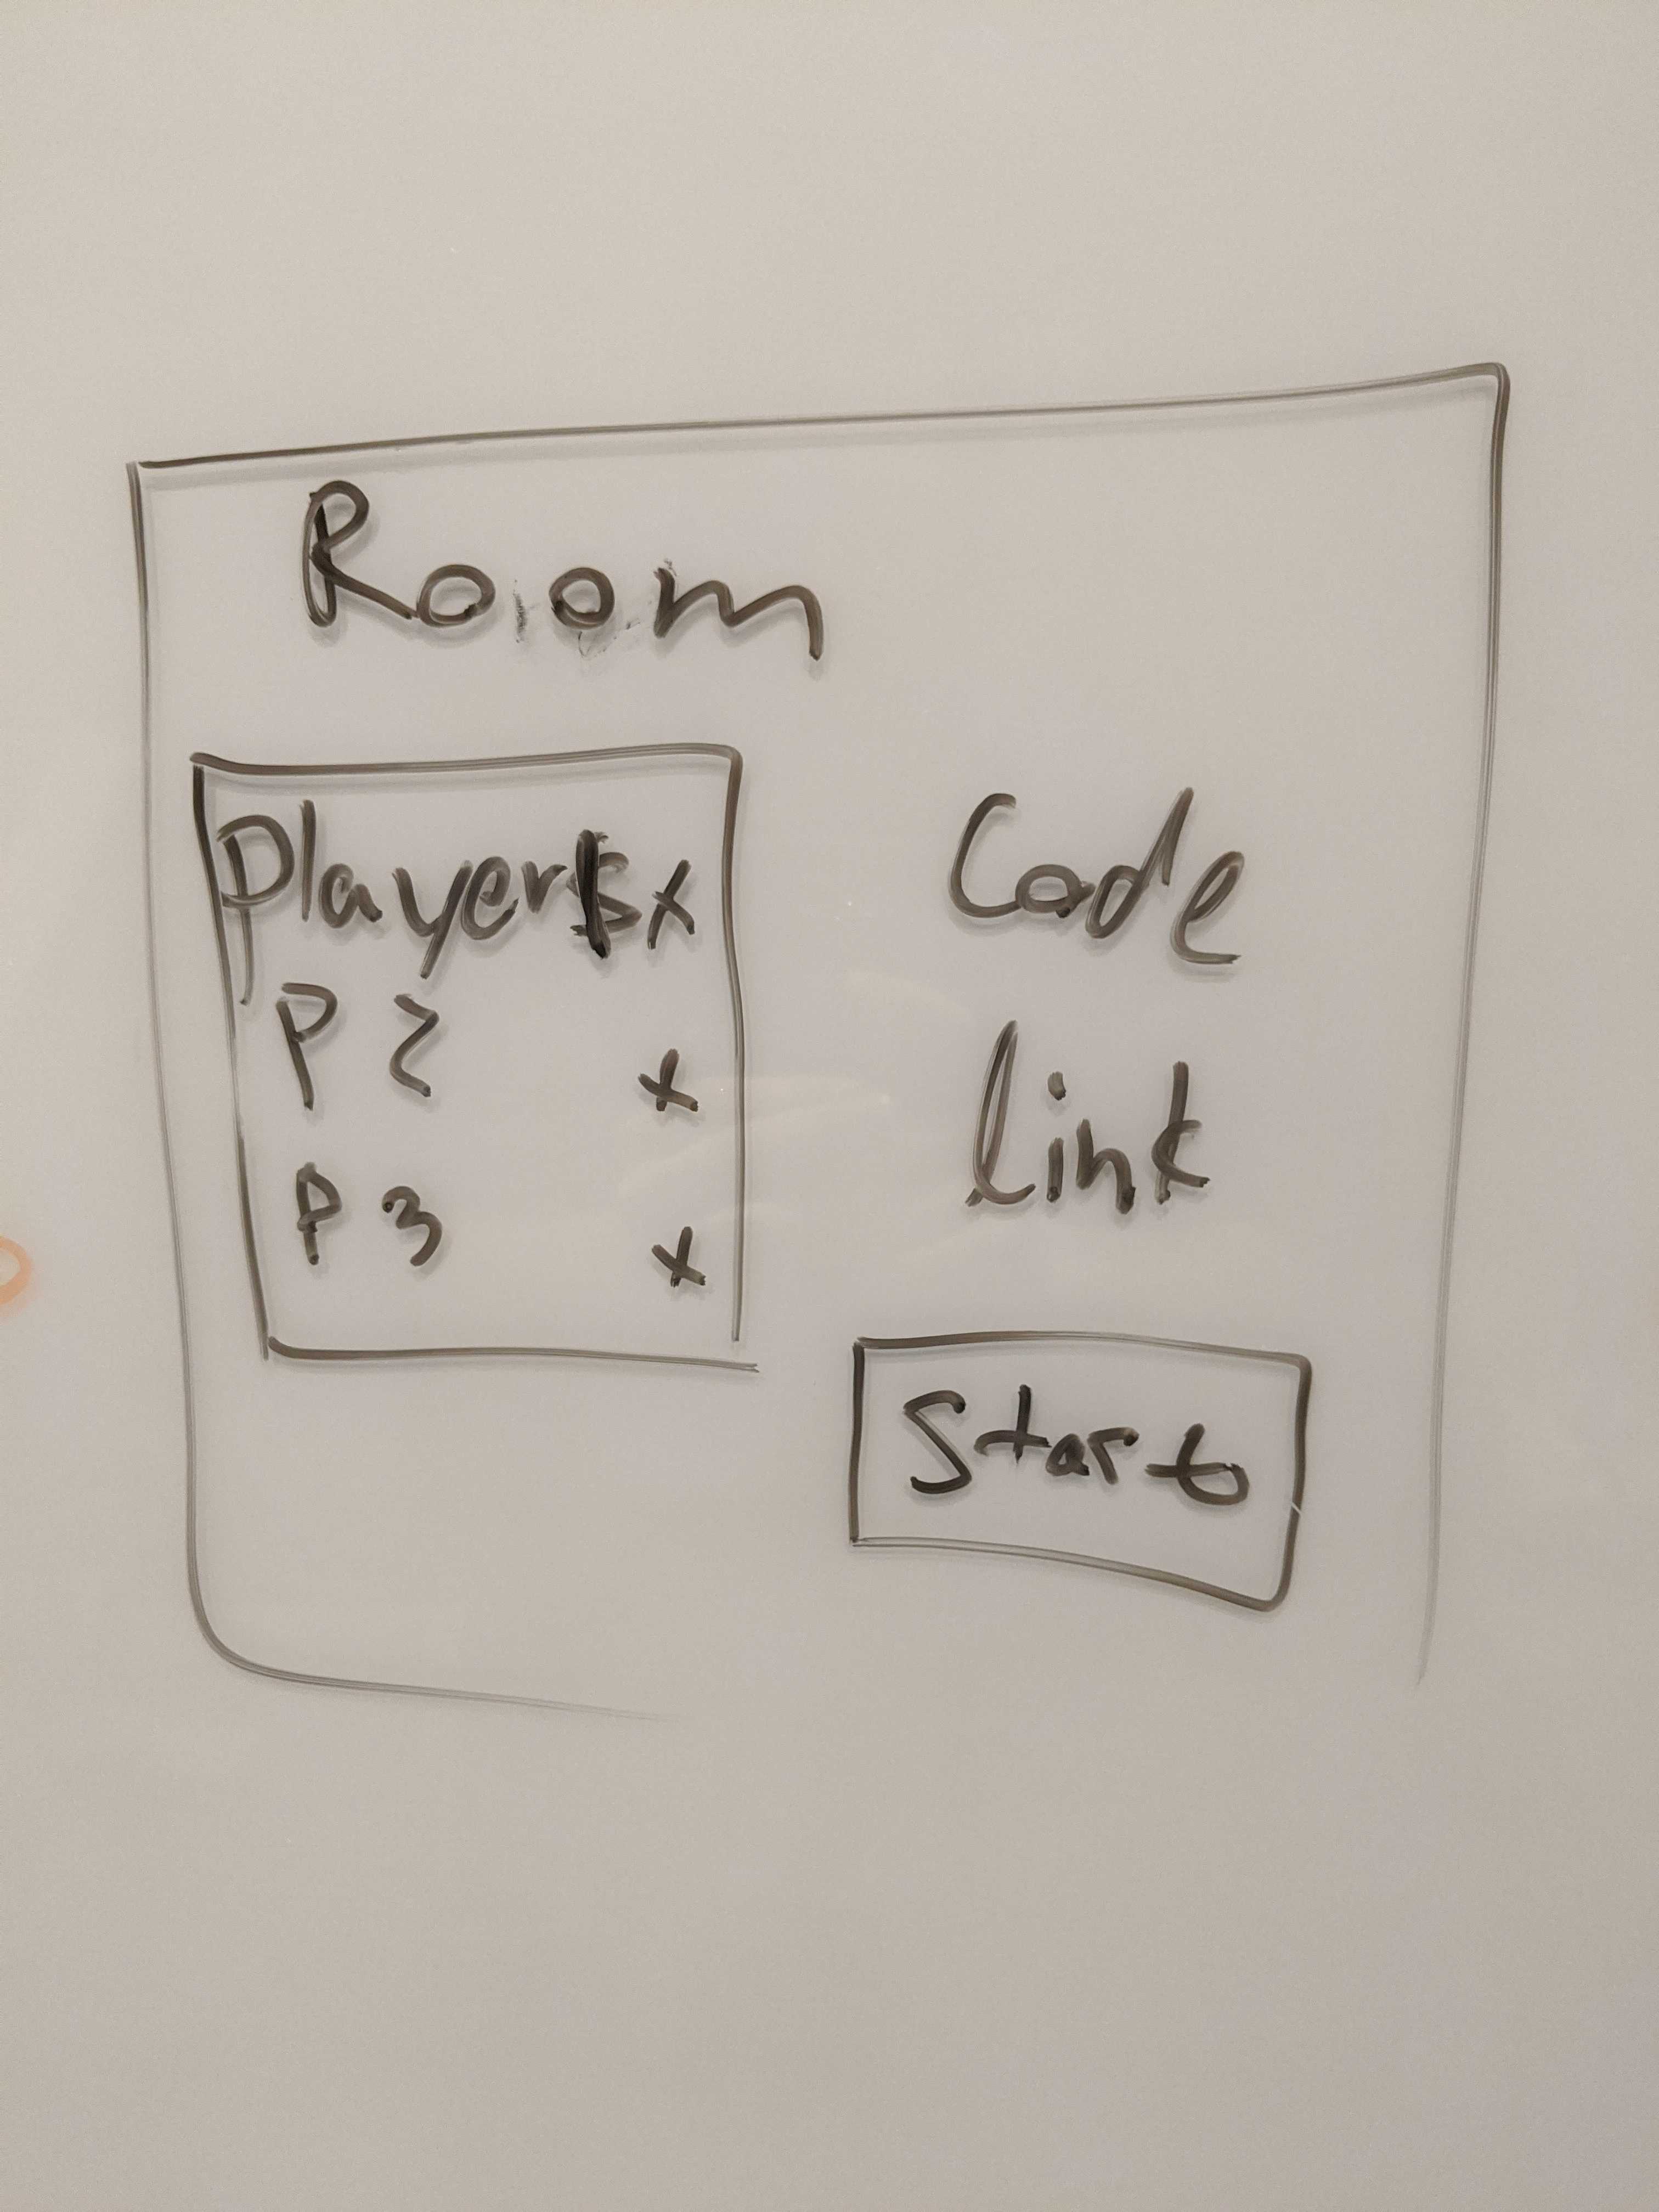 Room
Player1 x
P 2 x
P 3 x
Code
link
Start